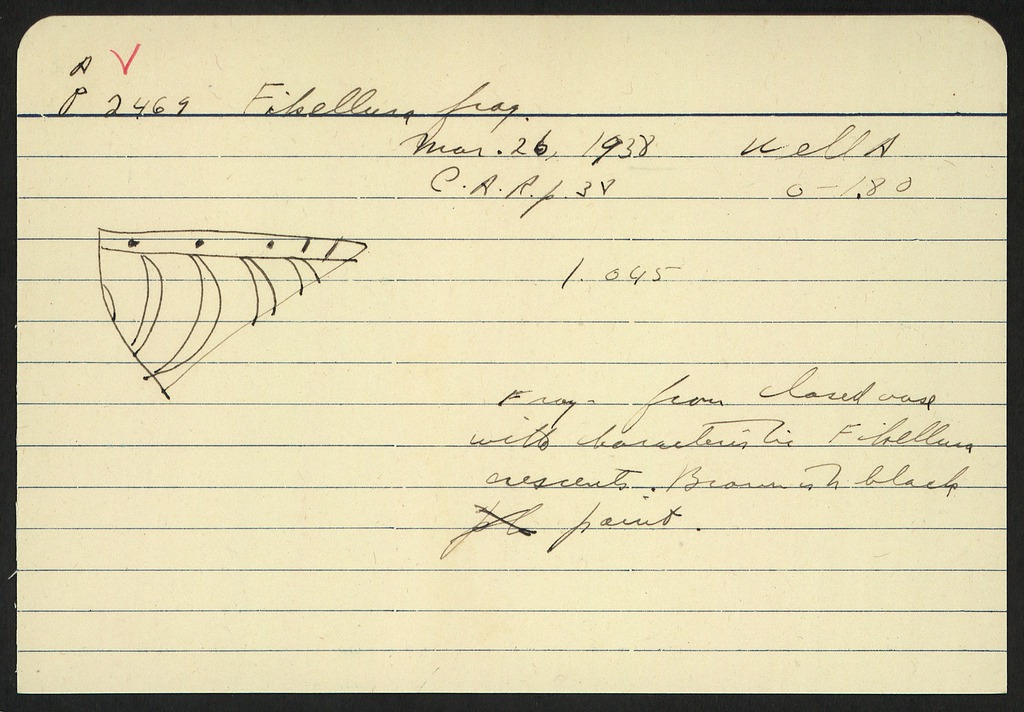 A
P 2469 Fikellura frag.
Mar. 26, 1938 Well A
C.A.R. p. 38 0-1.80
1. 045
Frag. from closed vase
with characteristic Fikellura
crescents. Brownish black
paint.